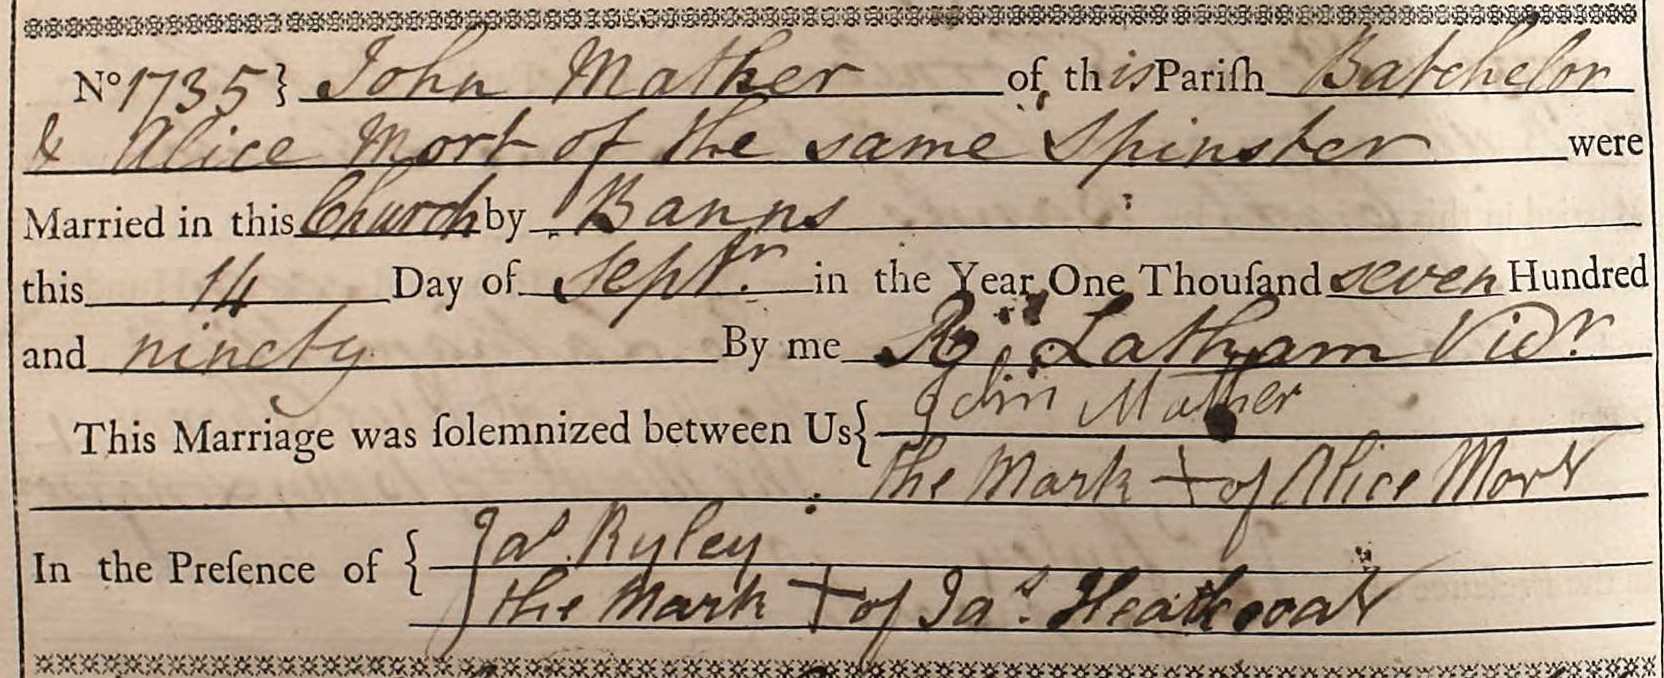 No 1735} John Mather of this Pariſh Batchelor
& Alice Mort of the same Spinster were
Married in this Church by Banns
this 14 Day of Septr. in the Year One Thouſand seven Hundred
and ninety By me Rd. Latham Vicr.
This Marriage was ſolemnized between Us { John Mather
the Mark + of Alice Mort
In the Preſence of { Jas. Ryley
the Mark + of Jas. Heathcoat